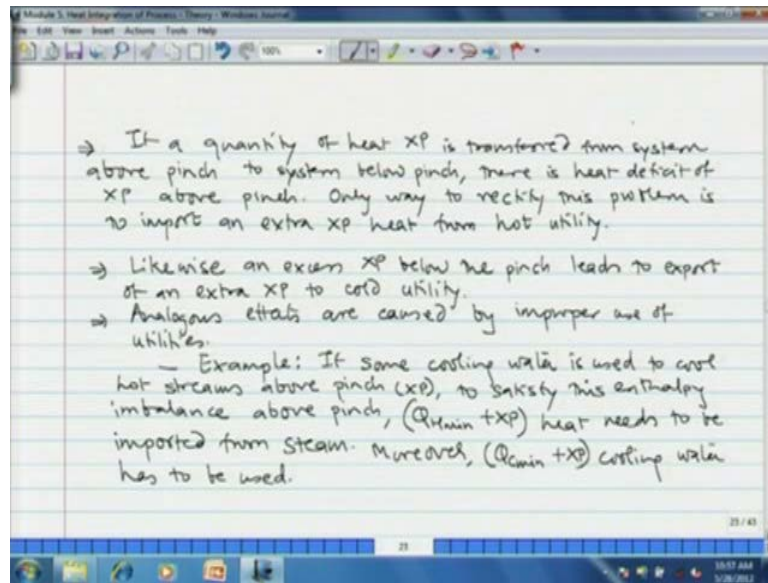 Module 5. Heat Integration of Process - Theory - Windows Journal
File Edit View Insert Actions Tools Help
100%
⇒ If a quantity of heat XP is transferred from system
above pinch to system below pinch, there is heat deficit of
XP above pinch. Only way to rectify this problem is
to import an extra XP heat from hot utility.
⇒ Likewise an excess XP below the pinch leads to export
of an extra XP to cold utility.
⇒ Analogous effects are caused by improper use of
utilities.
— Example: If some cooling water is used to cool
hot streams above pinch (XP), to satisfy this enthalpy
imbalance above pinch, (QHmin + XP) heat needs to be
imported from steam. Moreover, (QCmin + XP) cooling water
has to be used.
23 / 43
23
10:57 AM
5/28/2012